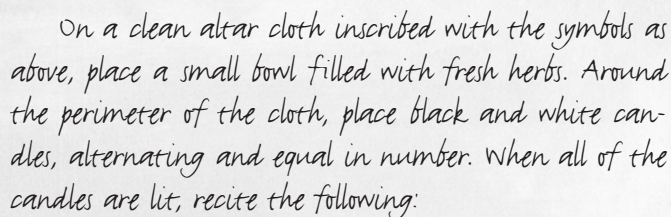 On a clean altar cloth inscribed with the symbols as
above, place a small bowl filled with fresh herbs. Around
the perimeter of the cloth, place black and white can-
dles, alternating and equal in number. When all of the
candles are lit, recite the following: